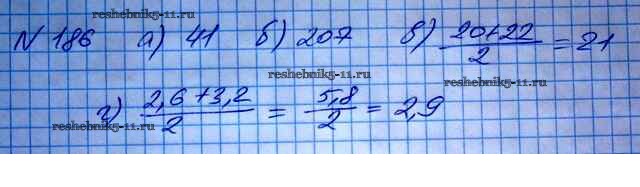 reshebnik5-11.ru
№ 186 а) 41 б) 207 в) (20+22)/2 = 21
reshebnik5-11.ru
г) (2,6+3,2)/2 = 5,8/2 = 2,9
reshebnik5-11.ru
reshebnik5-11.ru